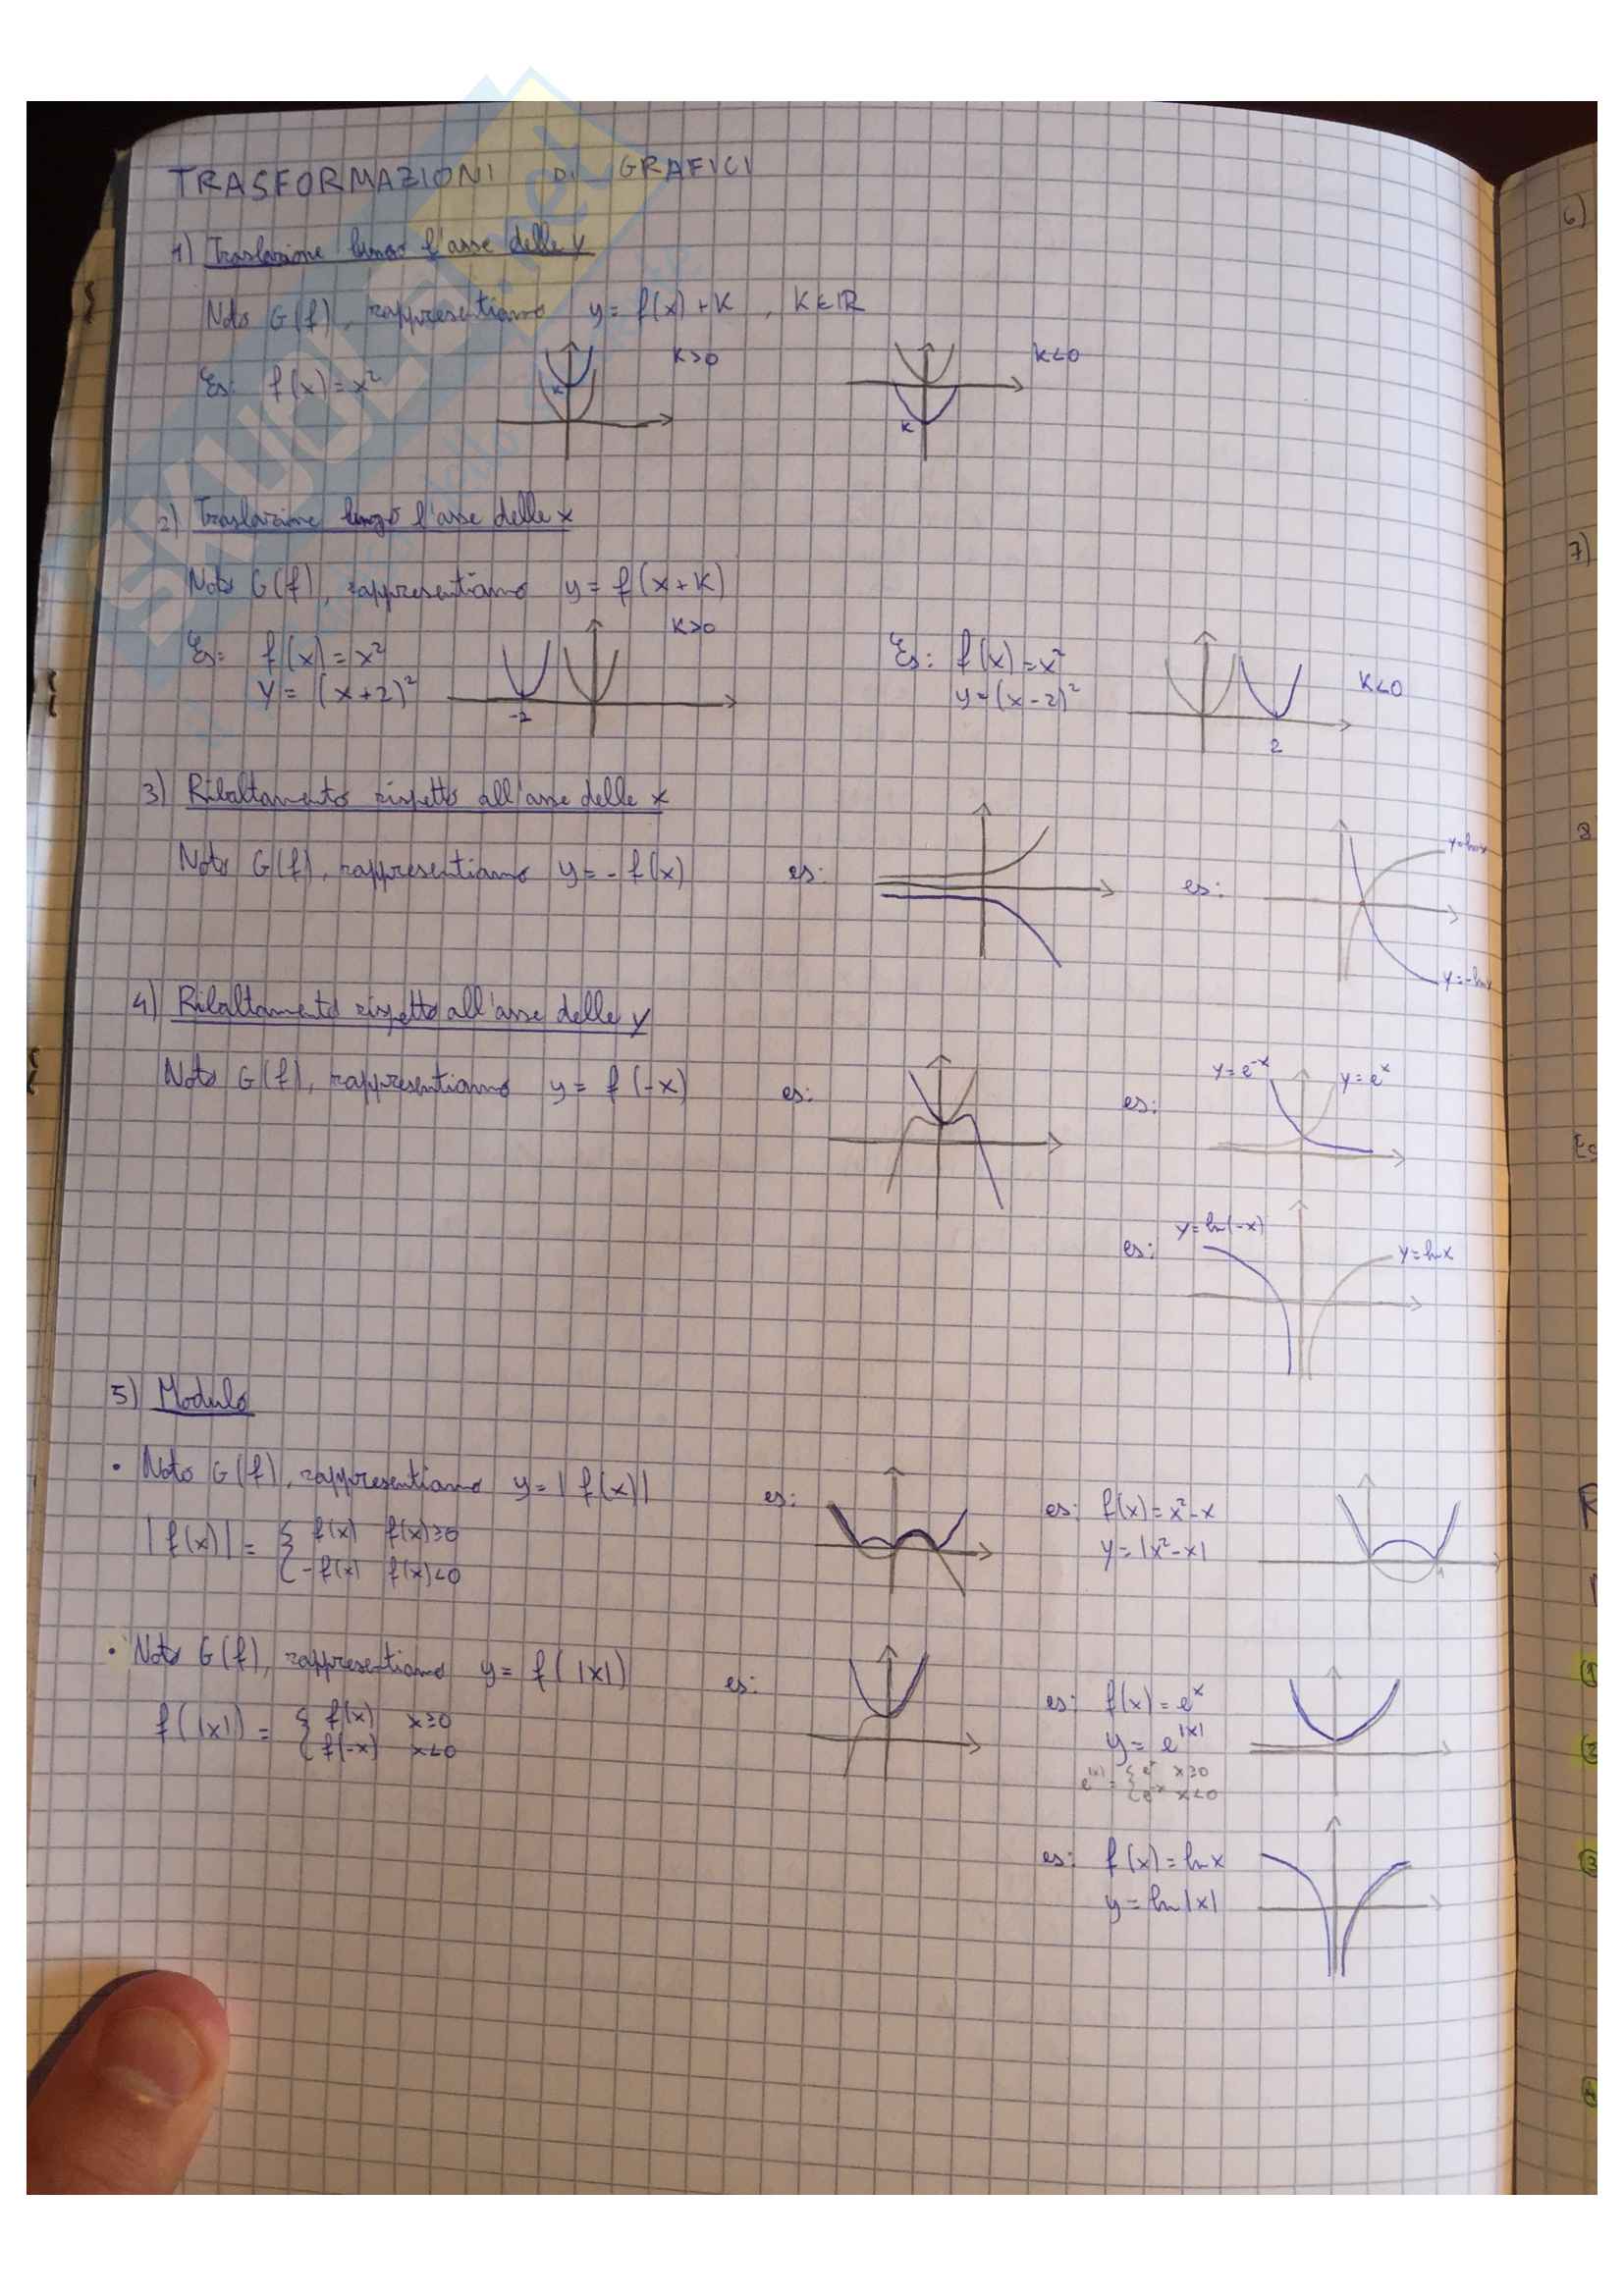 TRASFORMAZIONI DI GRAFICI
1) Traslazione lungo l'asse delle y
Noto G(f), rappresentiamo y = f(x) + K , K∈ℝ
Es: f(x) = x² K K>0 K K<0
2) Traslazione lungo l'asse delle x
Noto G(f), rappresentiamo y = f(x+K)
Es: f(x) = x² K>0 Es: f(x) = x²
y = (x+2)² -2 y=(x-2)² 2 K<0
3) Ribaltamento rispetto all'asse delle x
Noto G(f), rappresentiamo y = -f(x) es: es: y=lnx
y=-lnx
4) Ribaltamento rispetto all'asse delle y
Noto G(f), rappresentiamo y = f(-x) es: es: y=e⁻ˣ y=eˣ
es: y=ln(-x) y=lnx
5) Modulo
• Noto G(f), rappresentiamo y=|f(x)| es: es: f(x)=x²-x
|f(x)| = { f(x) f(x)≥0 y=|x²-x| 1
-f(x) f(x)<0
• Noto G(f), rappresentiamo y= f(|x|) es: es: f(x)=eˣ
f(|x|) = { f(x) x≥0 y= e^|x|
f(-x) x<0 e^|x| = { eˣ x≥0
e⁻ˣ x<0
es: f(x)=lnx
y=ln|x|
6)
7)
8
R
1
2
3
4
SKUOLA.net